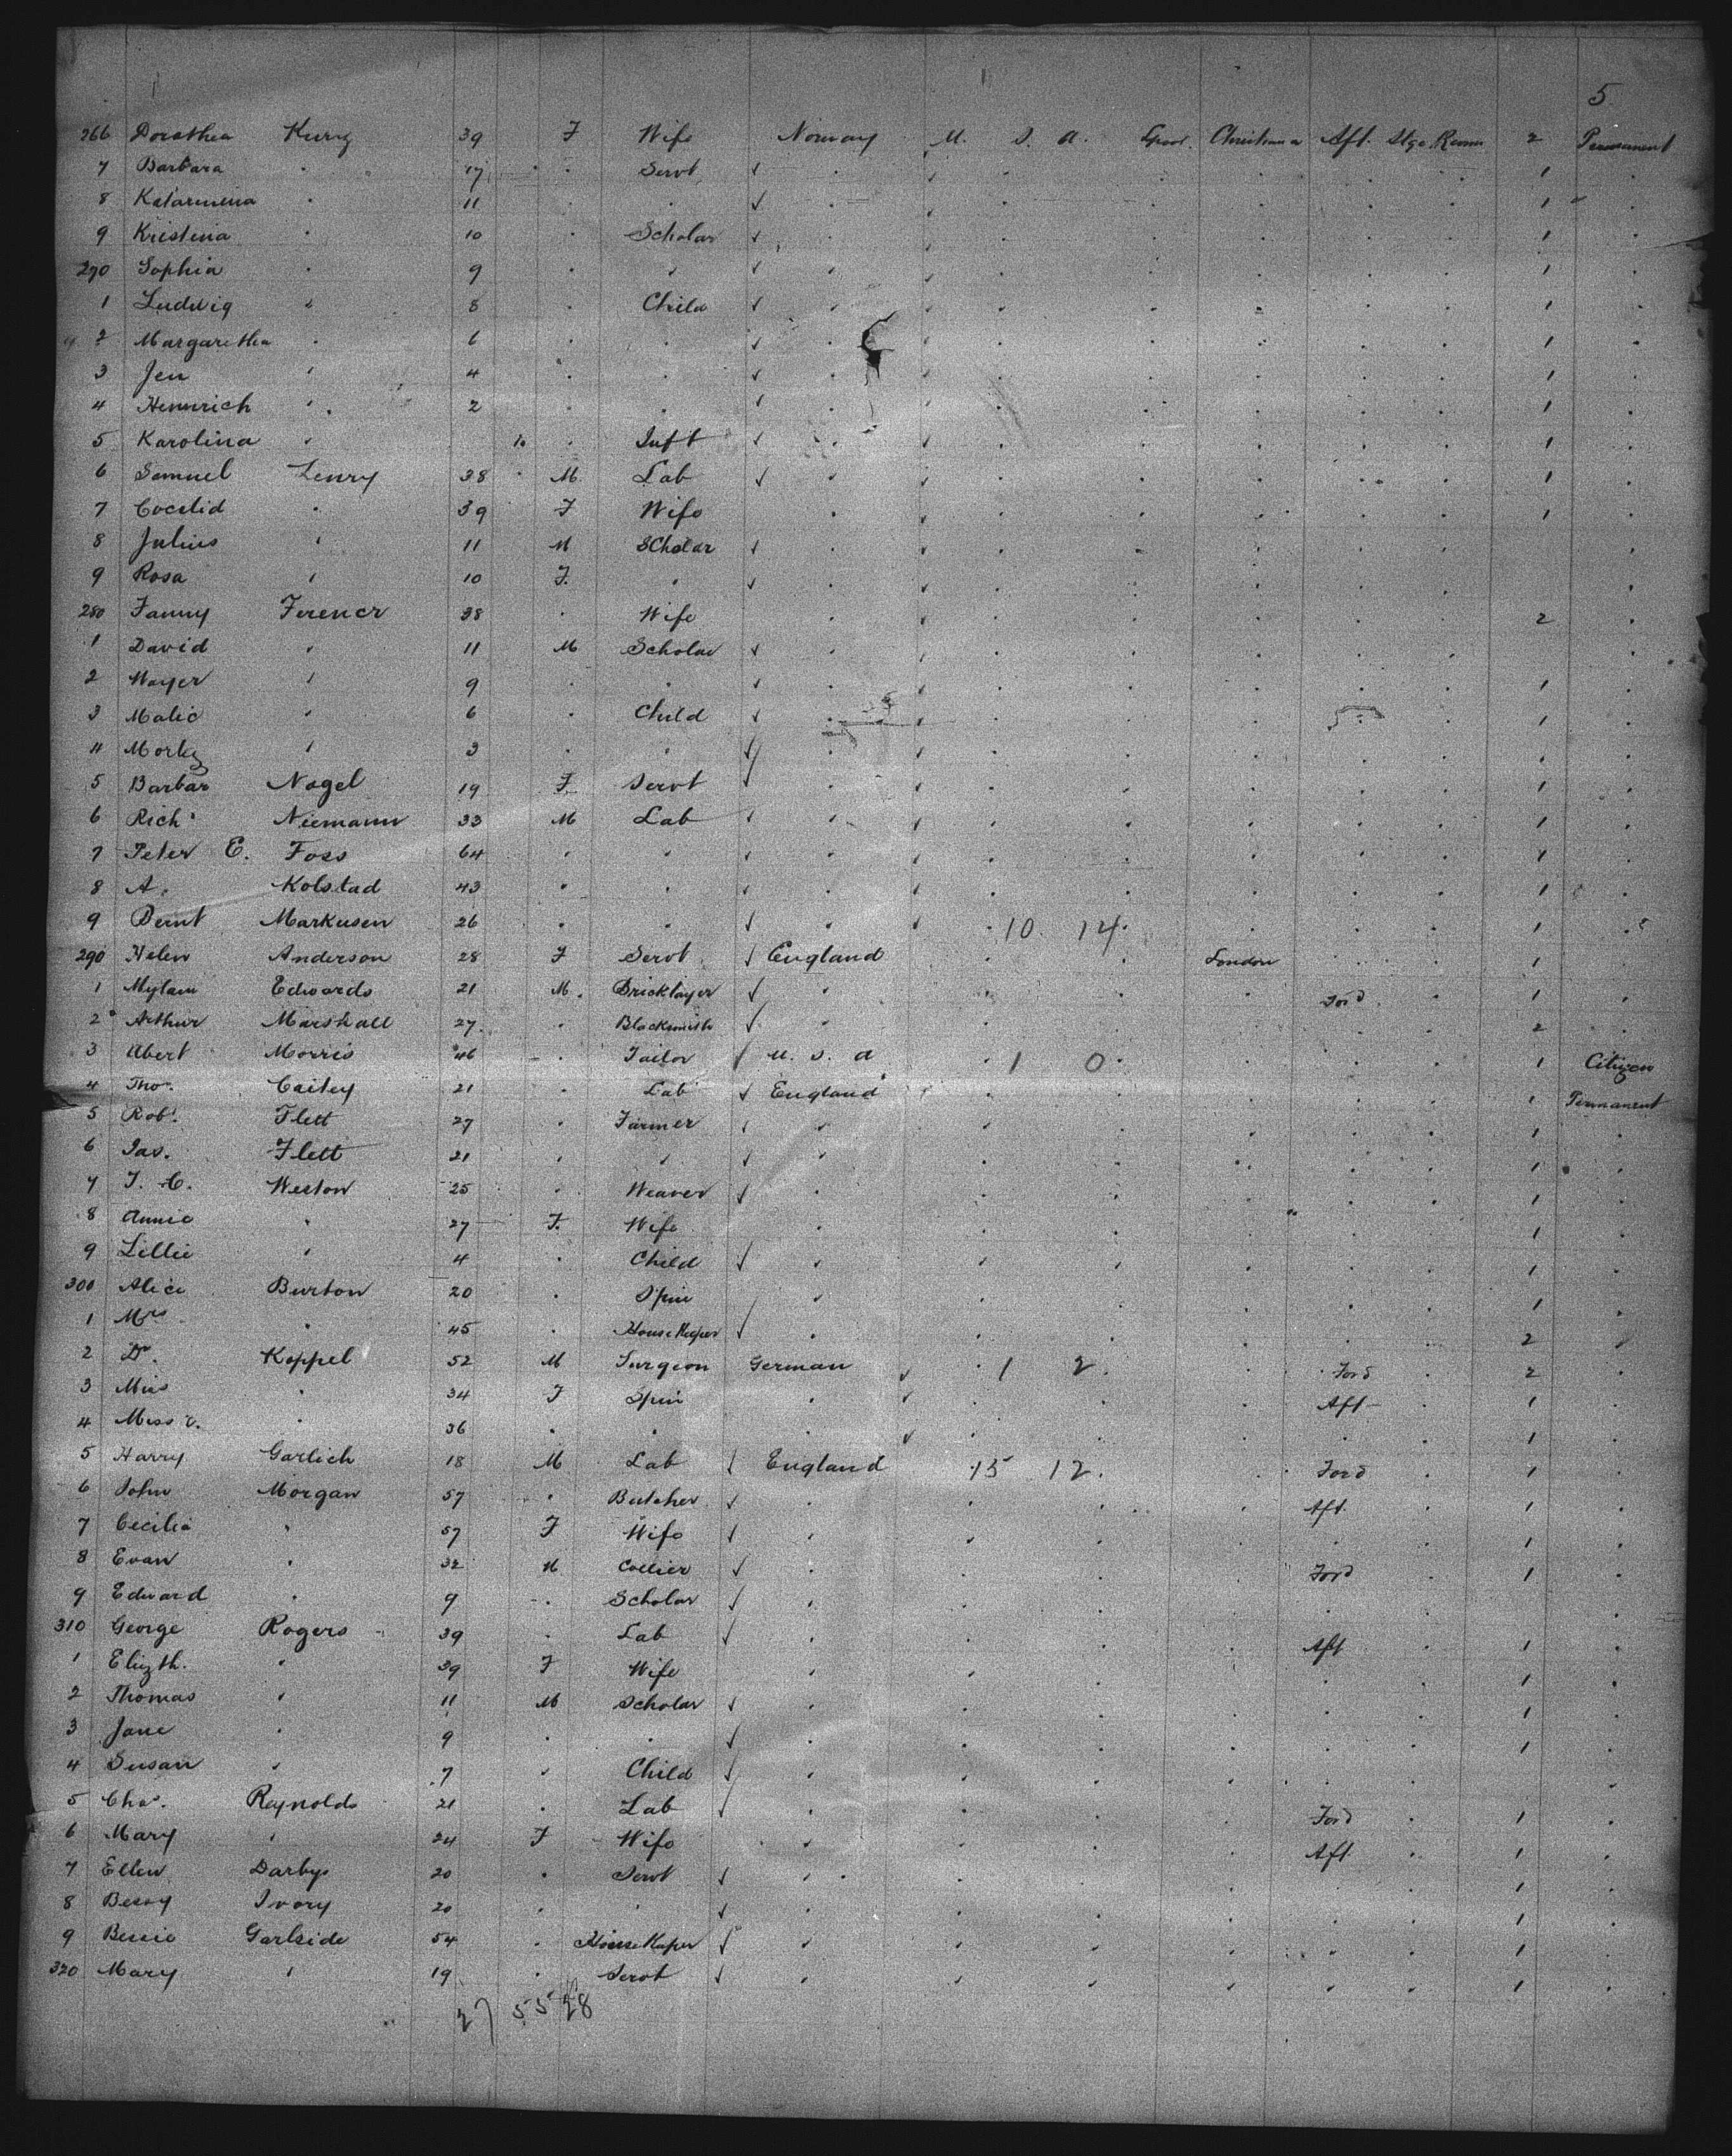 5
266 Dorothea Kurz 39 F Wife Norway U. S. A. Christiana Aft. Stge Rooms 2 Permanent
7 Barbara " 17 " Servt " 1 "
8 Katarinena " 11 " " " 1 "
9 Kristina " 10 " Scholar " 1 "
270 Sophia " 9 " " " 1 "
1 Ludwig " 8 " Child " 1 "
2 Margaretha " 6 " " " 1 "
3 Jen " 4 " " " 1 "
4 Heinrich " 2 " " " 1 "
5 Karolina " 10 " Inft " 1 "
6 Samuel 38 M Lab " 1 "
7 " 39 F Wife " 1 "
8 Julius " 11 M Scholar " "
9 Rosa " 10 F. " " "
280 Fanny Ferencz 38 " Wife " 2 "
1 David " 11 M Scholar " "
2 Mayer " 9 " " " 1 "
3 Malie " 6 " Child " 1 "
4 " 3 " " " "
5 Barbar Nagel 19 F. Servt " 1 "
6 Richd Niemann 33 M Lab " 1 "
7 Peter E. Foss 64 " " " 1 "
8 A. Kolstad 43 " " " 1 "
9 Bernt Markusen 26 " " " 10 14 1 "
290 Helen Anderson 28 F Servt England London 1 "
1 Edwards 21 M. Bricklayer " Ford 1 "
2 Arthur Marshall 27 " Blacksmith " 2 "
3 Albert Morris 46 " Tailor U. S. A 1 0 1 Citizen
4 Thos. 21 " Lab England 1 Permanent
5 Robt. Flett 27 " Farmer " 1 "
6 Jas. Flett 21 " " " 1 "
7 J. C. Weston 25 " Weaver " 1 "
8 Annie " 27 F. Wife " 1 "
9 Lillie " 4 " Child " 1 "
300 Alice Burton 20 " Spin " 1 "
1 Mrs " 45 " HouseKeeper " 2 "
2 Dr. Koppel 52 M Surgeon German 1 2 Ford 2 "
3 Miss " 34 F Spin " Aft 1 "
4 Miss " 36 " " " 1 "
5 Harry Garlich 18 M Lab England 15 12 Ford 1 "
6 John Morgan 57 " Butcher " Aft. 1 "
7 Cecilia " 57 F Wife " 1 "
8 Evan " 32 M Collier " Ford 1 "
9 Edward " 9 " Scholar " "
310 George Rogers 39 " Lab " Aft 1 "
1 Elizth. " 39 F Wife " 1 "
2 Thomas " 11 M Scholar " 1 "
3 Jane " 9 " " " 1 "
4 Susan " 7 " Child " "
5 Chas. Reynolds 21 " Lab " Ford 1 "
6 Mary " 24 F Wife " Aft. 1 "
7 Ellen Darby 20 " Servt " 1 "
8 Bessy Ivory 20 " " " 1 "
9 Bessie Garlside 54 " HouseKeper " 1 "
320 Mary " 19 " Servt " 1 "
27 55 28